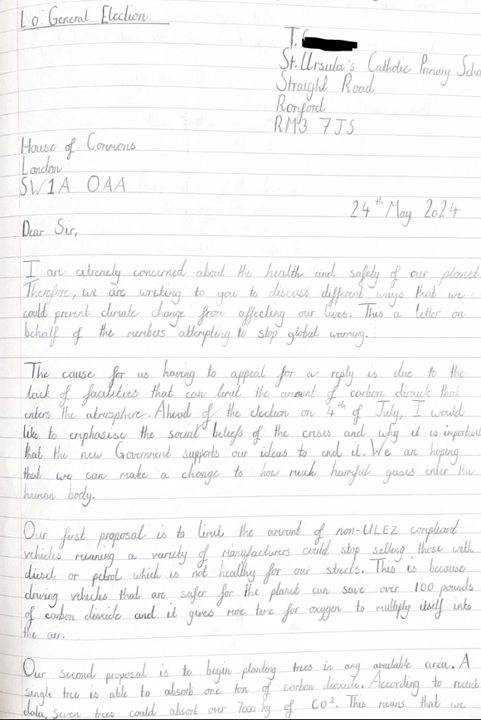 Lo: General Election
T.
St. Ursula's Catholic Primary Scho
Straight Road
Romford
RM3 7JS
House of Commons
London
SW1A 0AA
24th May 2024
Dear Sir,
I am extremely concerned about the health and safety of our planet.
Therefore, we are writing to you to discuss different ways that we
could prevent climate change from affecting our lives. This a letter on
behalf of the members attempting to stop global warming.
The cause for us having to appeal for a reply is due to the
lack of facilities that can limit the amount of carbon dioxide that
enters the atmosphere. Ahead of the election on 4th of July, I would
like to emphasise the social beliefs of the crisis and why it is important
that the new Government supports our ideas to end it. We are hoping
that we can make a change to how much harmful gases enter the
human body.
Our first proposal is to limit the amount of non-ULEZ compliant
vehicles meaning a variety of manufacturers could stop selling those with
diesel or petrol which is not healthy for our streets. This is because
driving vehicles that are safer for the planet can save over 100 pounds
of carbon dioxide and it gives more time for oxygen to multiply itself into
the air.
Our second proposal is to begin planting trees in any available area. A
single tree is able to absorb one ton of carbon dioxide. According to recent
data, seven trees could absorb over 7000 kg of CO². This means that we